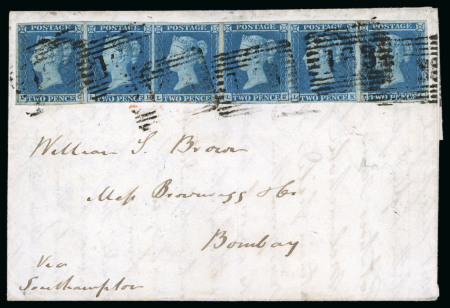 POSTAGE POSTAGE POSTAGE POSTAGE POSTAGE POSTAGE
TWO PENCE TWO PENCE TWO PENCE TWO PENCE TWO PENCE TWO PENCE
William S. Brown
Bombay
Via
Southampton